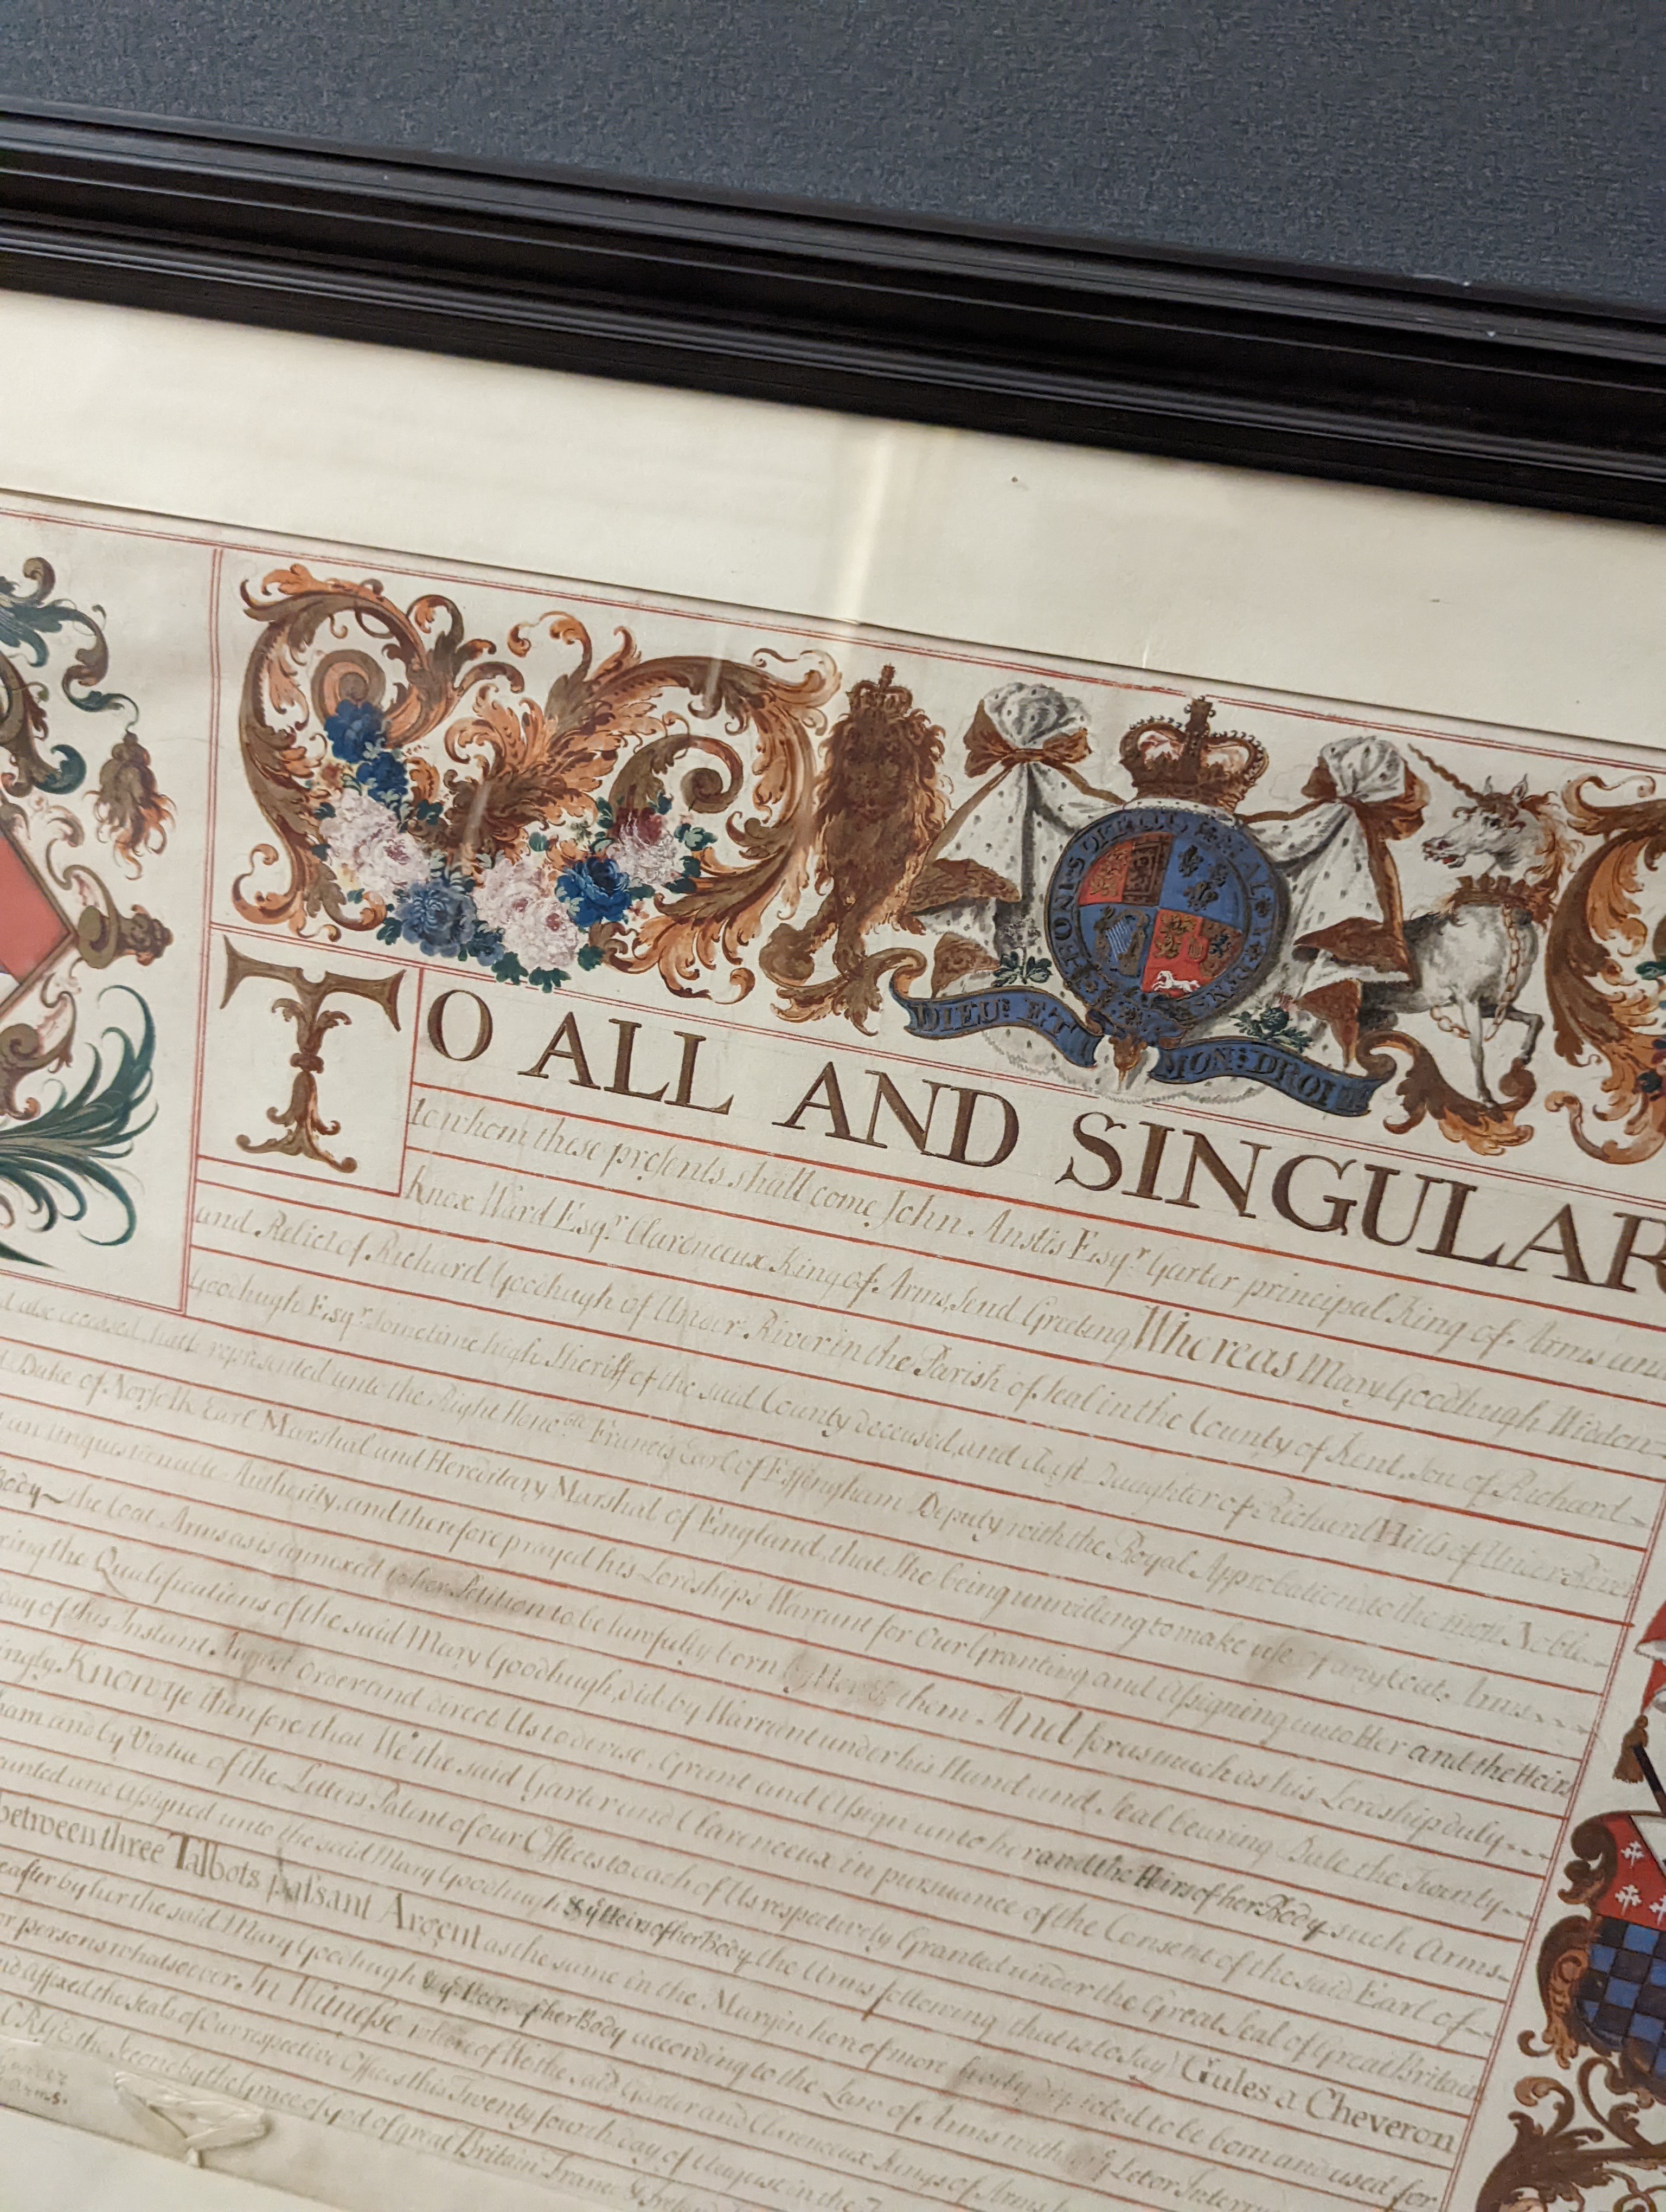 DIEU: ET MON: DROIT
TO ALL AND SINGULAR
to whom these presents shall come John Anstis Esqr. Garter principal King of Arms and
Knox Ward Esqr. Clarenceux King of Arms, send Greeting Whereas Mary Goodhugh Widdow
and Relict of Richard Goodhugh of Under River in the Parish of Seal in the County of Kent, son of Richard
Goodhugh Esqr. sometime high Sheriff of the said County deceased, and Daughter of Richard Hills of Under River
also deceased, hath represented unto the Right Honoble. Francis Earl of Effingham Deputy with the Royal Approbation to the most Noble
Duke of Norfolk Earl Marshal and Hereditary Marshal of England, that She being unwilling to make use of any Coat Arms
an unquestionable Authority, and therefore prayed his Lordship's Warrant for Our Granting and Assigning unto Her and the Heirs
Body the Coat Arms as is annexed to her Petition to be lawfully born by Her & them And forasmuch as his Lordship duly
the Qualifications of the said Mary Goodhugh, did by Warrant under his Hand and Seal bearing Date the Twenty
day of this Instant August Order and direct Us to devise, Grant and Assign unto her and the Heirs of her Body such Arms
Know ye therefore that We the said Garter and Clarenceux in pursuance of the Consent of the said Earl of
and by Virtue of the Letters Patent of our Offices to each of Us respectively Granted under the Great Seal of Great Britain
and Assigned unto the said Mary Goodhugh & ye Heirs of her Body the Arms following that is to say Gules a Cheveron
between three Talbots passant Argent as the same in the Margin hereof more depicted to be born and used for
by her the said Mary Goodhugh & ye Heirs of her Body according to the Law of Arms without
persons whatsoever. In Witness whereof We the said Garter and Clarenceux Kings of Arms
Affixed the Seals of Our respective Offices this Twenty fourth day of August in the
the Second by the Grace of God of great Britain France & Ireland